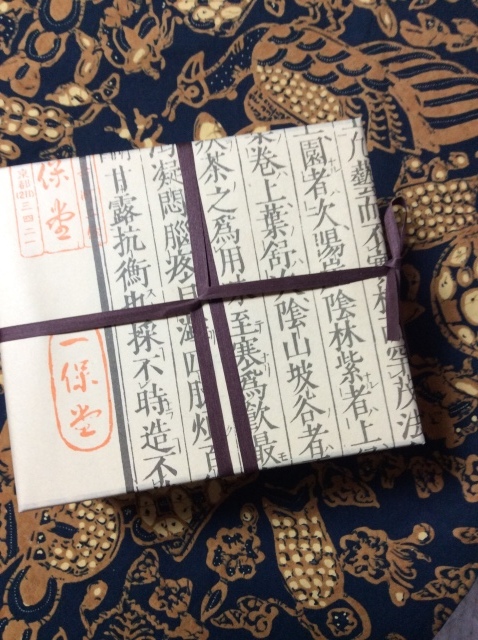 藝而不
茂法
園者次陽崖陰林紫者上
卷上葉舒次陰山坡谷者
茶之爲用味至寒爲飲最
凝悶腦疼目澁四肢煩百
甘露抗衡也採不時造不
保堂
三四二一
一保堂